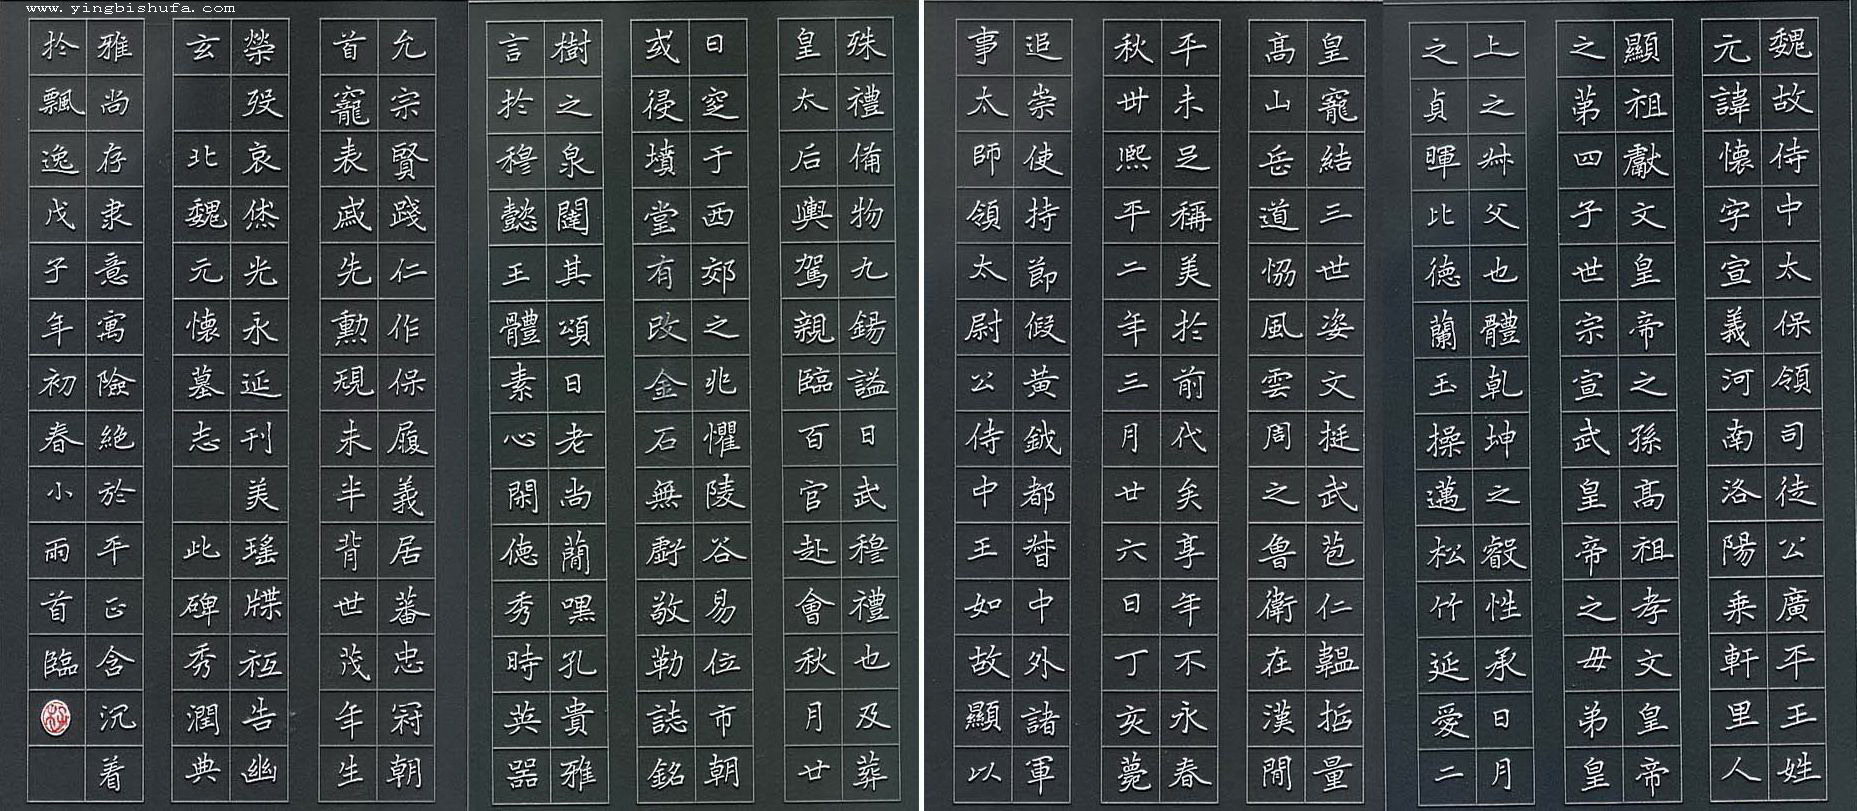 www.yingbishufa.com
魏故侍中太保領司徒公廣平王姓
元諱懷字宣義河南洛陽乘軒里人
顯祖獻文皇帝之孫高祖孝文皇帝
之第四子世宗宣武皇帝之母弟皇
上之叔父也體乾坤之叡性承日月
之貞暉比德蘭玉操邁松竹延愛二
皇寵結三世姿文挺武苞仁韞哲量
高山岳道協風雲周之魯衛在漢閒
平未足稱美於前代矣享年不永春
秋卅熙平二年三月廿六日丁亥薨
追崇使持節假黃鉞都督中外諸軍
事太師領太尉公侍中王如故顯以
殊禮備物九錫謚曰武穆禮也及葬
皇太后輿駕親臨百官赴會秋月廿
日窆于西郊之兆懼陵谷易位市朝
或侵墳堂有改金石無虧敬勒誌銘
樹之泉闥其頌曰老尚簡嘿孔貴雅
言於穆懿王體素心閑德秀時英器
允宗賢踐仁作保履義居蕃忠冠朝
首寵表戚先勳規未半背世茂年生
榮歿哀倏光永延刊美瑤牒祗告幽
玄 北魏元懷墓志 此碑秀潤典
雅尚存隶意寓險絕於平正含沉着
於飄逸戊子年初春小雨首臨